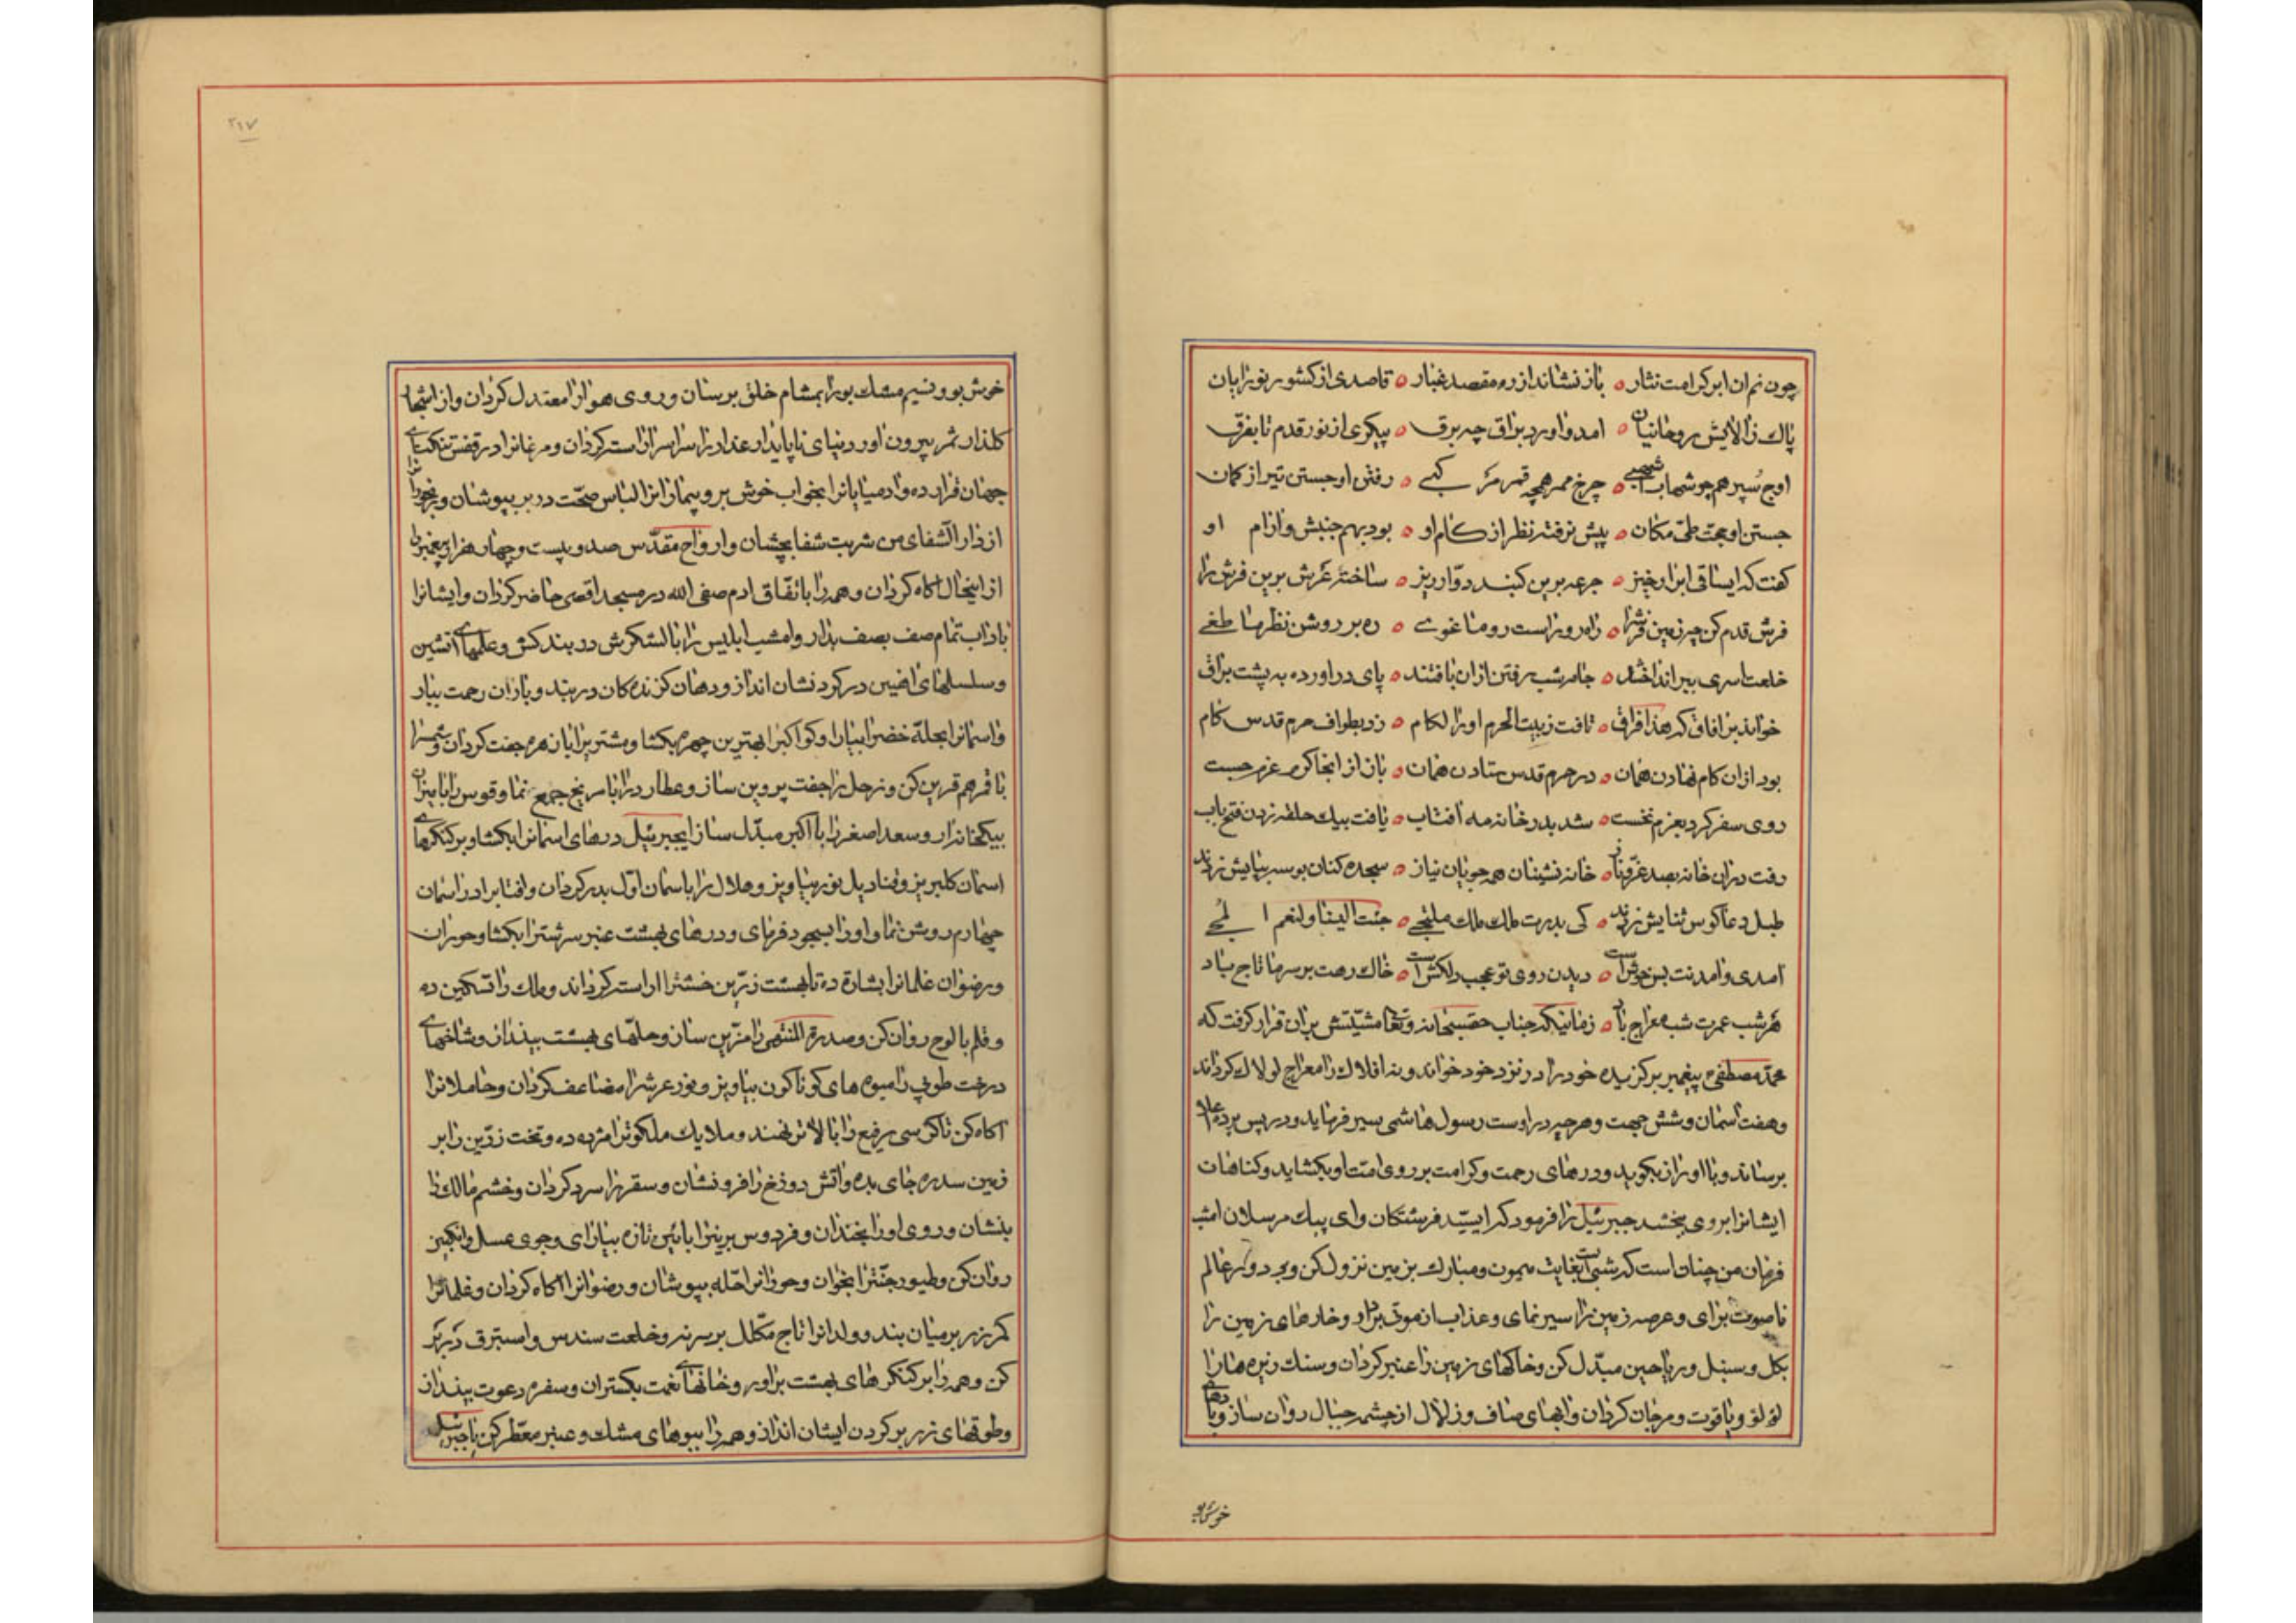 چون نم ان ابر کرامت نثار ه باز نشاند از ره مقصد غبار ه قاصدی از کشور نورا بان
پاك ز الایش روحانیان ه امد و اورد براق چه برق ه پیکری از نور قدم تا بفرق
اوج سپر همچو شهاب ه چرخ ممر همچه قمر مرکبی ه رفتن او جستن تیر از کمان
جستن او حجت طی مکان ه پیش نرفته نظر از کام او ه بود بهم جنبش و ارام او
کفت که ایساقی ابرار خیز ه جرعه برین کنبد دوار ریز ه ساخته عرش برین فرش را
فرش قدم کن چه زمین عرش را ه راه رو راست رو ما غوی ه ره بر روشن نظر ما طغی
خلعت اسری ببر انداختند ه جامه شب رفتن ازان بافتند ه پای در اورده به پشت براق
خواند بر افاق که هذا فراق ه تافت ز بیت الحرم او را لکام ه زد بطواف حرم قدس کام
بود ازان کام نهادن همان ه در حرم قدس ستادن همان ه باز از انجا کمر عزم جست
روی سفر کرد بعزم نخست ه شد بدر خانه مه افتاب ه یافت بیك حلقه زدن فتح باب
رفت دران خانه بصد عز و ناز ه خانه نشینان همه جویان نیاز ه سجده کنان بوسه بپایش زدند
طبل دعا کوس ثنایش زدند ه کی بدرت ملك ملك ملتجی ه جئت الینا و لنعم المجی
امدی و امدنت بس خوش است ه دیدن روی تو عجب دلکش است ه خاك رهت بر سر ما تاج باد
هر شب عمرت شب معراج باد ه زمانیکه جناب حقسبحانه و تعا مشیتش بران قرار کرفت که
محمد مصطفی پیغمبر برکزیده خود را در نزد خود خواند و نه افلاك را معراج لولاك کرداند
و هفت اسمان و شش جهت و هر چه دراوست رسول هاشمی سیر فرماید و در پس پرده
برساند و با او راز بکوید و درهای رحمت و کرامت بر روی امت او بکشاید و کناهان
ایشانرا بروی بخشد جبرئیل را فرمود که ای سید فرشتکان و ای پیك مرسلان امشب
فرمان من چنان است که شبی است بغایت میمون و مبارك بزمین نزول کن و بر دوار عالم
برای و عرصه زمین را سیر نمای و عذاب از موتی بردار و خارهای زمین را
بکل و سنبل و ریاحین مبدل کن و خاکهای زمین را عنبر کردان و سنك ریزه ها را
لؤلؤ و یاقوت و مرجان کردان و ابهای صاف و زلال از چشمه جبال روان ساز و بادهای
خوش بو
خوش بو و نسیم مشك بو را بمشام خلق برسان و روی هوا را معتدل کردان و از اشجار
کلذار ثمر بیرون اور و دنیای ناپایدار غدار را سراسر اراسته کردان و مرغانرا در قفس تنکنای
جهان قرار ده و ادمیایانرا بخواب خوش بر و بیماران را لباس صحت در بر بپوشان و رنجوران را
از دار الشفای من شربت شفا بچشان و ارواح مقدس صد و بیست و چهار هزار پیغمبران
از اینحال اکاه کردان و همه را باتفاق ادم صفی الله در مسجد اقصی حاضر کردان و ایشانرا
باداب تمام صف بصف بدار و امشب ابلیس را با لشکرش در بند کش و غلهای اتشین
و سلسلهای اهنین در کردنشان انداز و دهان کزنده کان در بند و باران رحمت ببار
و اسمانرا بحله خضرا بیارا و کواکبرا بهترین چهره بکشا و مشتریرا با زهره جفت کردان و شمسرا
با قمر هم قرین کن و زحل را جفت پروین ساز و عطارد را با مریخ جمع نما و قوس را با میزان
بیکخانه ار و سعد اصغر را با اکبر مبدل ساز ایجبرئیل درهای اسمانرا بکشا و بر کنکرهای
اسمان کلبریز و قنادیل نور بیاویز و هلال را باسمان اول بدر کردان و افتابرا در اسمان
چهارم روشن نما و او را بسجود فرمای و درهای بهشت عنبر سرشترا بکشا و حوران
و رضوان غلمانرا بشارة ده تا بهشت زرین خشترا اراسته کردانند و ملك را تسکین ده
و قلم با لوح روان کن و صدرة المنتهی را مزین ساز و حلهای بهشت بینداز و شاخهای
درخت طوبی را میوه های کوناکون بیاویز و نور عرشرا مضاعف کردان و حاملانرا
اکاه کن تا کرسی رفیع را بالاتر نهند و ملایك ملکوترا مژده ده و تخت زرین را بر
زمین سدره جای بده و اتش دوزخ را فرو نشان و سقر را سرد کردان و خشم مالك را
بنشان و روی او را بخندان و فردوس برینرا بائین تازه بیارای و جوی عسل و انکبین
روان کن و طیور جنترا بخوان و حورانرا حله بپوشان و رضوانرا اکاه کردان و غلمانرا
کمر زر بر میان بند و ولدانرا تاج مکلل بر سر نه و خلعت سندس و استبرق در بر
کن و همه را بر کنکرهای بهشت براور و خانهای نعمت بکستران و سفره دعوت بینداز
و طوقهای زر بر کردن ایشان انداز و همه را ببوهای مشك و عنبر معطر کن یا جبرئیل